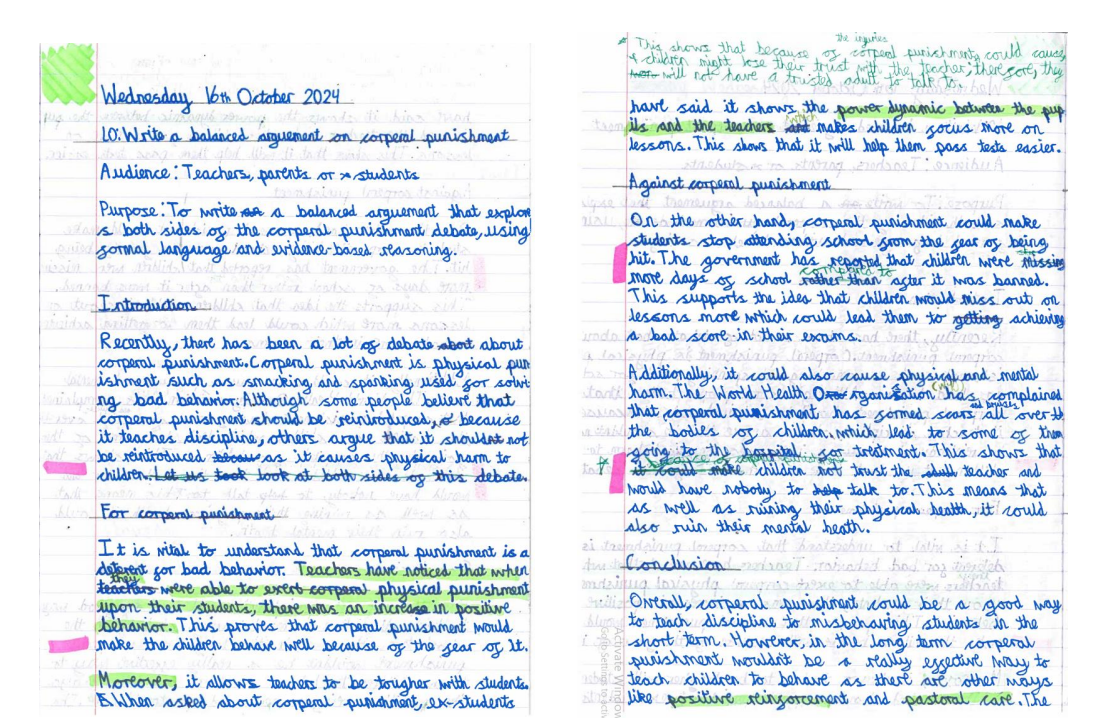 Wednesday 16th October 2024
LO: Write a balanced arguement on corperal punishment
Audience: Teachers, parents or students
Purpose: To write a balanced arguement that explor
s both sides of the corperal punishment debate, using
formal language and evidence-based reasoning.
Introduction
Recently, there has been a lot of debate abot about
corperal punishment. Corperal punishment is physical pun
ishment such as smacking and spanking used for solvi
ng bad behavior. Although some people believe that
corperal punishment should be reintroduced, because
it teaches discipline, others argue that it shouldnt not
be reintroduced becaus as it causes physical harm to
children. Let us took look at both sides of this debate.
For corperal punishment
It is vital to understand that corperal punishment is a
deterent for bad behavior. Teachers have noticed that when
they
teachers were able to exert corperal physical punishment
upon their students, there was an increase in positive
behavior. This proves that corperal punishment would
make the children behave well because of the fear of it.
Moreover, it allows teachers to be tougher with students.
When asked about corperal punishment, ex-students
the injuries
* This shows that because of corperal punishments could cause,
children might lose their trust with the teacher; therefore, they
will not have a trusted adult to talk to.
have said it shows the power dynamic between the pup
ils and the teachers which makes children focus more on
lessons. This shows that it will help them pass tests easier.
Against corperal punishment
On the other hand, corperal punishment could make
students stop attending school from the fear of being
hit. The government has reported that children were missing
compared to
more days of school rather than after it was banned.
This supports the idea that children would miss out on
lessons more which could lead them to getting achieving
a bad score in their exams.
Additionally, it could also cause physical and mental
harm. The World Health Organisation has complained
and bruises
that corperal punishment has formed scars all over th
the bodies of children, which lead to some of them
going to the hospital for treatment. This shows that
it could make children not trust the adult teacher and
would have nobody to help talk to. This means that
as well as ruining their physical health, it could
also ruin their mental heath.
Conclusion
Overall, corperal punishment could be a good way
to teach discipline to misbehaving students in the
short term. However, in the long term corperal
punishment wouldnt be a really effective way to
teach children to behave as there are other ways
like positive reinforcement and pastoral care. The
Activate Window